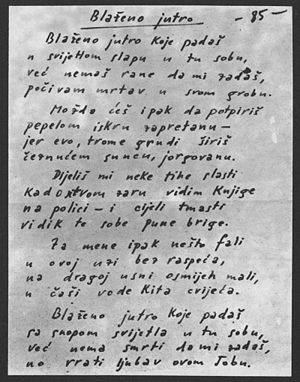 Blaženo jutro
- 85 -
Blaženo jutro koje padaš
u svijetlom slapu u tu sobu,
već nemaš rane da mi zadaš,
počivam mrtav u svom grobu.
Možda ćeš ipak da potpiriš
pepelom iskru zapretanu —
jer evo, trome grudi širiš
čeznućem suncu, jorgovanu.
Dijeliš mi neke tihe slasti
kad u tvom žaru vidim knjige
na polici — i cijeli tmasti
vidik te sobe pune brige.
Za mene ipak nešto fali
u ovoj uzi bez raspeća,
na dragoj usni osmijeh mali,
u čaši vode kita cvijeća.
Blaženo jutro koje padaš
sa snopom svijetla u tu sobu,
već nema smrti da mi zadaš,
no vrati ljubav ovom Jobu.